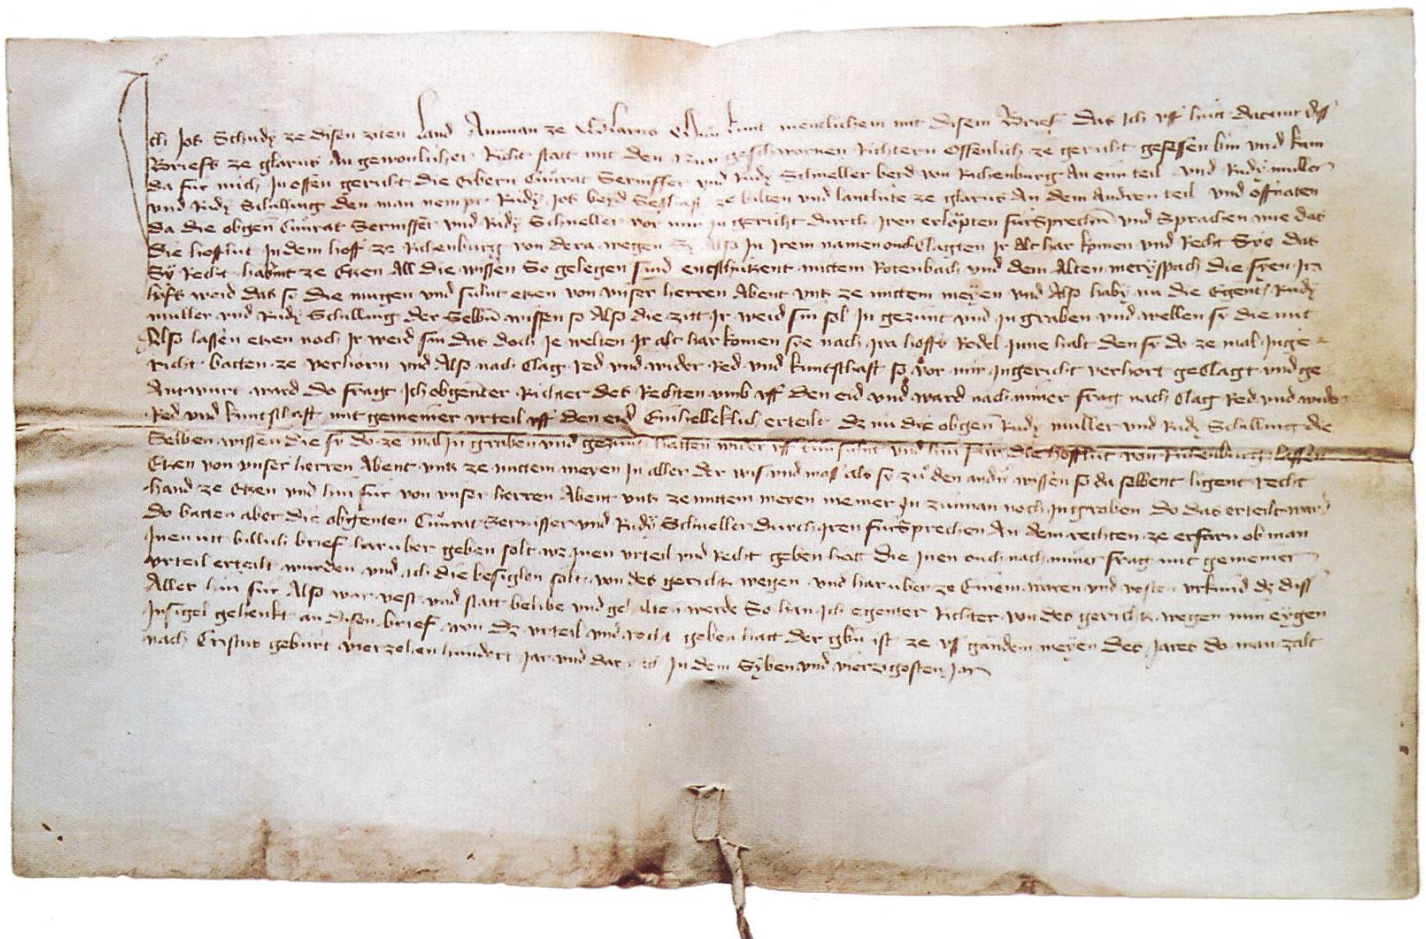 Ich Jos Schudy ze disen ziten Land Amman ze Glarus Tun kunt menklichem mit disem Brief Das ich uff hútt datum diss
Briefs ze glarus An gewonlicher Richt statt mit den Nún geschwornen Richtern Offenlich ze gericht gesessen bin und kam
da fúr mich In offen gericht die Erbern Cůnrat Sernisser und Rudy Schneller beid von Richenburg An eim teil und Rudy muller
und Rudy Schilling den man nempt Rudy Jos beyd Seshaft ze bilten und lantlúte ze glarus An dem Andren teil und offnoten
da die obgen Cůnrat Sernisser und Rudy Schneller vor mir In gericht durch Iren erlöpten fúrsprechen und Sprachen wie das
die hofflút In dem hoff ze Richenburg von dera wegen Sy Also In Irem namen ouch Clagten Ir Alt har komen und Recht Sye das
Sy Recht habint ze Etzen All die wissen So gelegen sind entzschúzent mittem Rotenbach und dem Alten meryspach die syen Ira
hoffs weid das sy die mugen und súlint etzen von unser herren Abent untz ze mittem meyen und Also haby nu die Egent Rudy
muller und Rudy Schilling der Selben wissen so Also die zitt Ir weid sin sol In gezúnt und In graben und wellen sy die nit
Also lassen etzen noch Ir weid sin das doch Je welten Ir alt har komen sye nach Ira hoffs Rodel Inne halt den sy do ze mal Inge
richt batten ze verhörn und Also nach Clag Red und wider Red und kuntschaft so vor mir In gericht verhort geClagt und ge
Antwurt ward Do fragt Ich obgenter Richter des Rechten umb uff den eid und ward nach miner frag nach Clag Red und wider
Red und kuntschaft mit gemeiner urteil uff den eid Einhelleklich erteilt dz nu die obgen Rudy muller und Rudy Schilling die
Selben wissen die sy do ze mal In graben und gezúnt hatten wider uff tun súlint und hin fúr die hofflút von Richenburg lassen
Etzen von unser herren Abent untz ze mittem meyen In aller der wis und mass als sy zů den andern wissen so da selbent ligent recht
hand ze Etzen und hin fúr von unser herren Abent untz ze mittem meyen niemer In zúnan noch In graben Do das erteilt war
do batten aber die obgenten Cůnrat Sernisser und Rudy Schneller durch Iren fúrsprechen An dem rechten ze erfarn ob man
Inen útt billich brief harúber geben solt wz Inen urteil und Recht geben hatt die Inen ouch nach miner frag mit gemeiner
urteil erteilt wurden und ich die besiglen solt von des gerichtz wegen und harúber ze Einem waren und vesten urkúnd dz diss
Alles hin fúr Also war vest und statt belibe und gehalten werde So han Ich egenter Richter von des gerichtz wegen min eygen
Insigel gehenkt an disen brief won dz urteil und recht geben hatt der gben ist ze us gandem meyen des Jares do man zalt
nach Cristus gebúrt vierzehen hundert Jar und dar nach In dem Syben und vierzigosten Jar